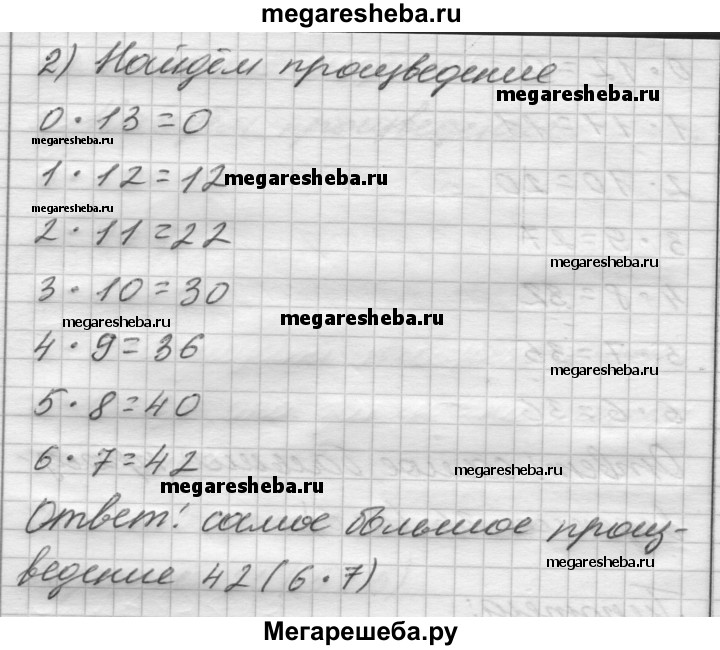 megaresheba.ru
2) Найдём произведение
megaresheba.ru
0 · 13 = 0
megaresheba.ru
1 · 12 = 12
megaresheba.ru
megaresheba.ru
2 · 11 = 22
megaresheba.ru
3 · 10 = 30
megaresheba.ru
megaresheba.ru
4 · 9 = 36
megaresheba.ru
5 · 8 = 40
6 · 7 = 42
megaresheba.ru
megaresheba.ru
Ответ: самое большое произ-
megaresheba.ru
ведение 42 (6 · 7)
Мегарешеба.ру